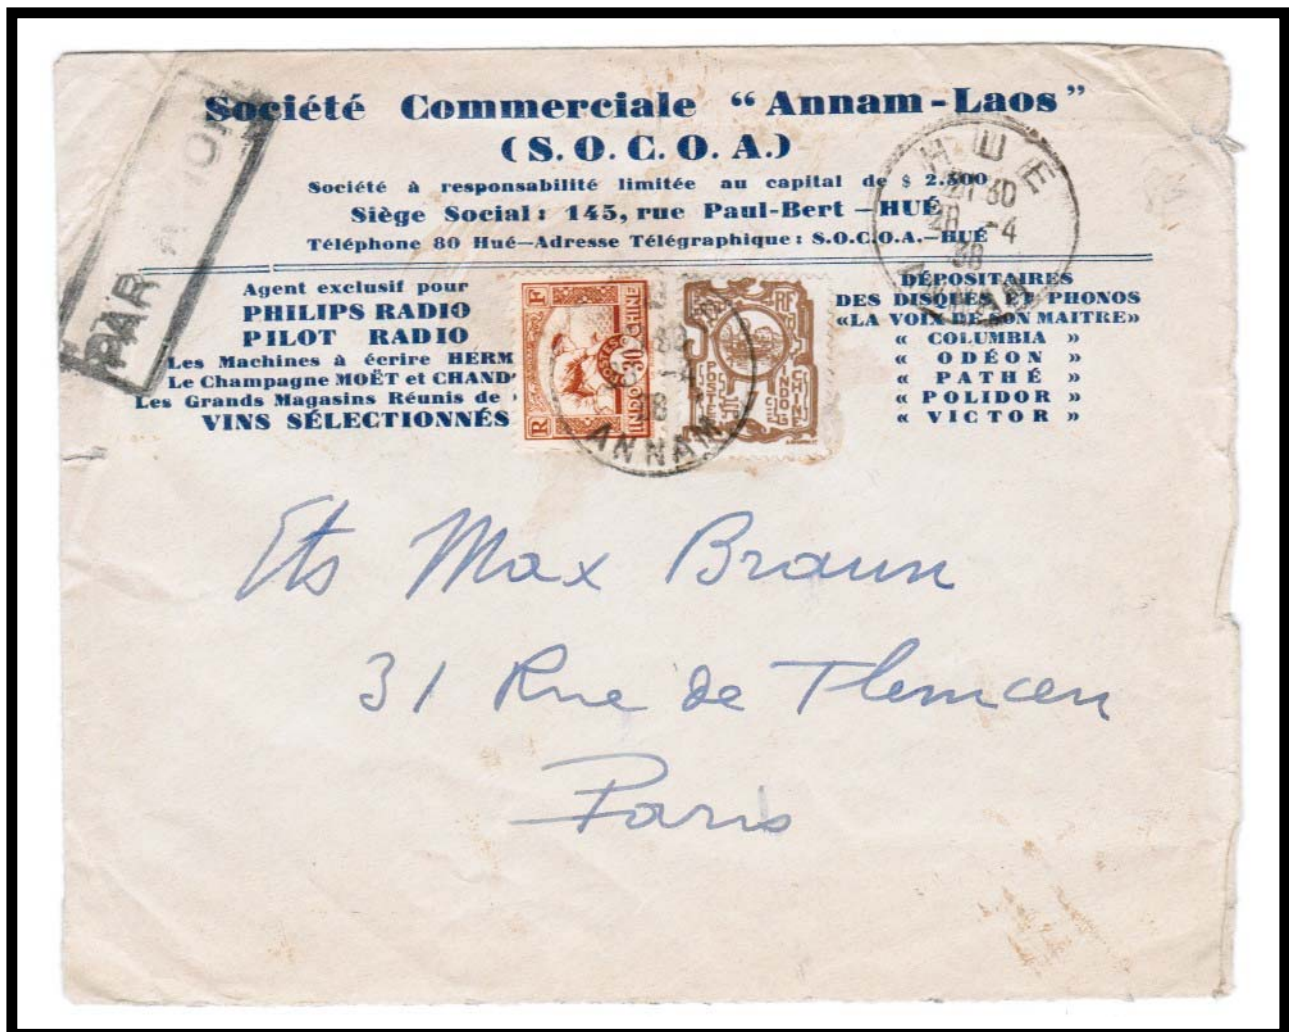 PAR AVION
Société Commerciale “Annam-Laos”
(S. O. C. O. A.)
Société à responsabilité limitée au capital de $ 2.500
Siège Social : 145, rue Paul-Bert — HUÉ
Téléphone 80 Hué—Adresse Télégraphique : S.O.C.O.A.—HUÉ
HUE
21 30
28 -4
38
ANNAM
Agent exclusif pour
PHILIPS RADIO
PILOT RADIO
Les Machines à écrire HERM
Le Champagne MOËT et CHAND
Les Grands Magasins Réunis de
VINS SÉLECTIONNÉS
R F
POSTES
30
INDOCHINE
ANNAM
RF
INDO
CHINE
POSTES
DÉPOSITAIRES
DES DISQUES ET PHONOS
«LA VOIX DE SON MAITRE»
« COLUMBIA »
« ODÉON »
« PATHÉ »
« POLIDOR »
« VICTOR »
Ets Max Braun
31 Rue de Tlemcen
Paris